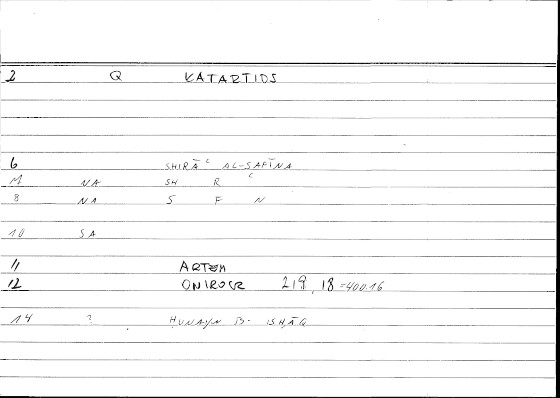 2 Q KATARTIOS
6 SHIRĀʿ AL-SAFĪNA
M NA SH R ʿ
8 NA S F N
10 SA
11 ARTEM
12 ONIROCR 219,18=400.16
14 ? ḤUNAYN B. ISḤĀQ